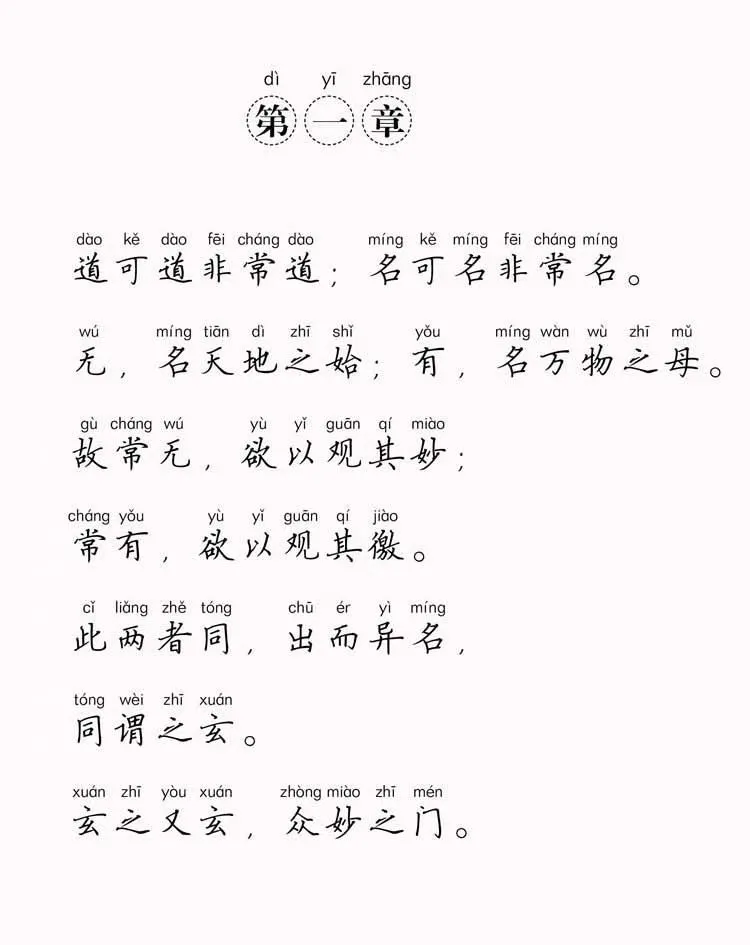 dì yī zhāng
第一章
dào kě dào fēi cháng dào míng kě míng fēi cháng míng
道可道非常道；名可名非常名。
wú míng tiān dì zhī shǐ yǒu míng wàn wù zhī mǔ
无，名天地之始；有，名万物之母。
gù cháng wú yù yǐ guān qí miào
故常无，欲以观其妙；
cháng yǒu yù yǐ guān qí jiào
常有，欲以观其徼。
cǐ liǎng zhě tóng chū ér yì míng
此两者同，出而异名，
tóng wèi zhī xuán
同谓之玄。
xuán zhī yòu xuán zhòng miào zhī mén
玄之又玄，众妙之门。